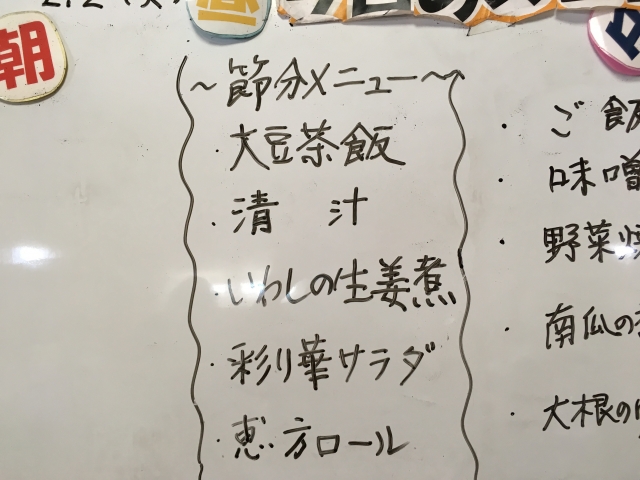 朝
昼
～節分メニュー～
・大豆茶飯
・清 汁
・いわしの生姜煮
・彩り華サラダ
・恵方ロール
・ご飯
・味噌
・野菜焼
・南瓜の
・大根の